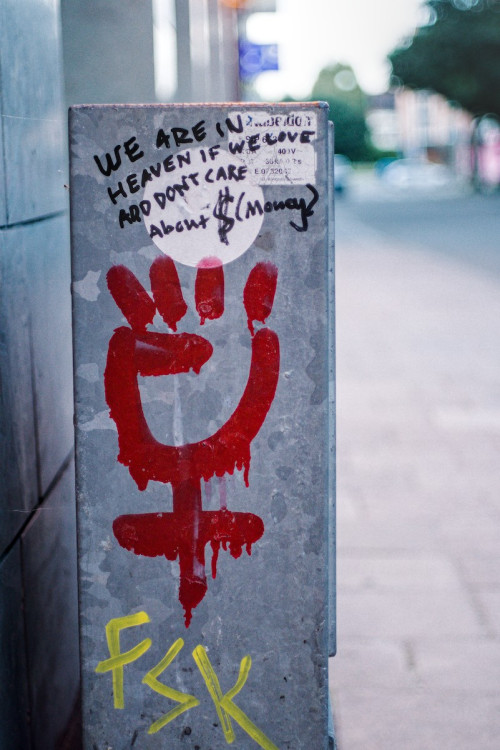 WE ARE IN
HEAVEN IF WE LOVE
ADD DON'T CARE
About $ (Money)
400V
FSK